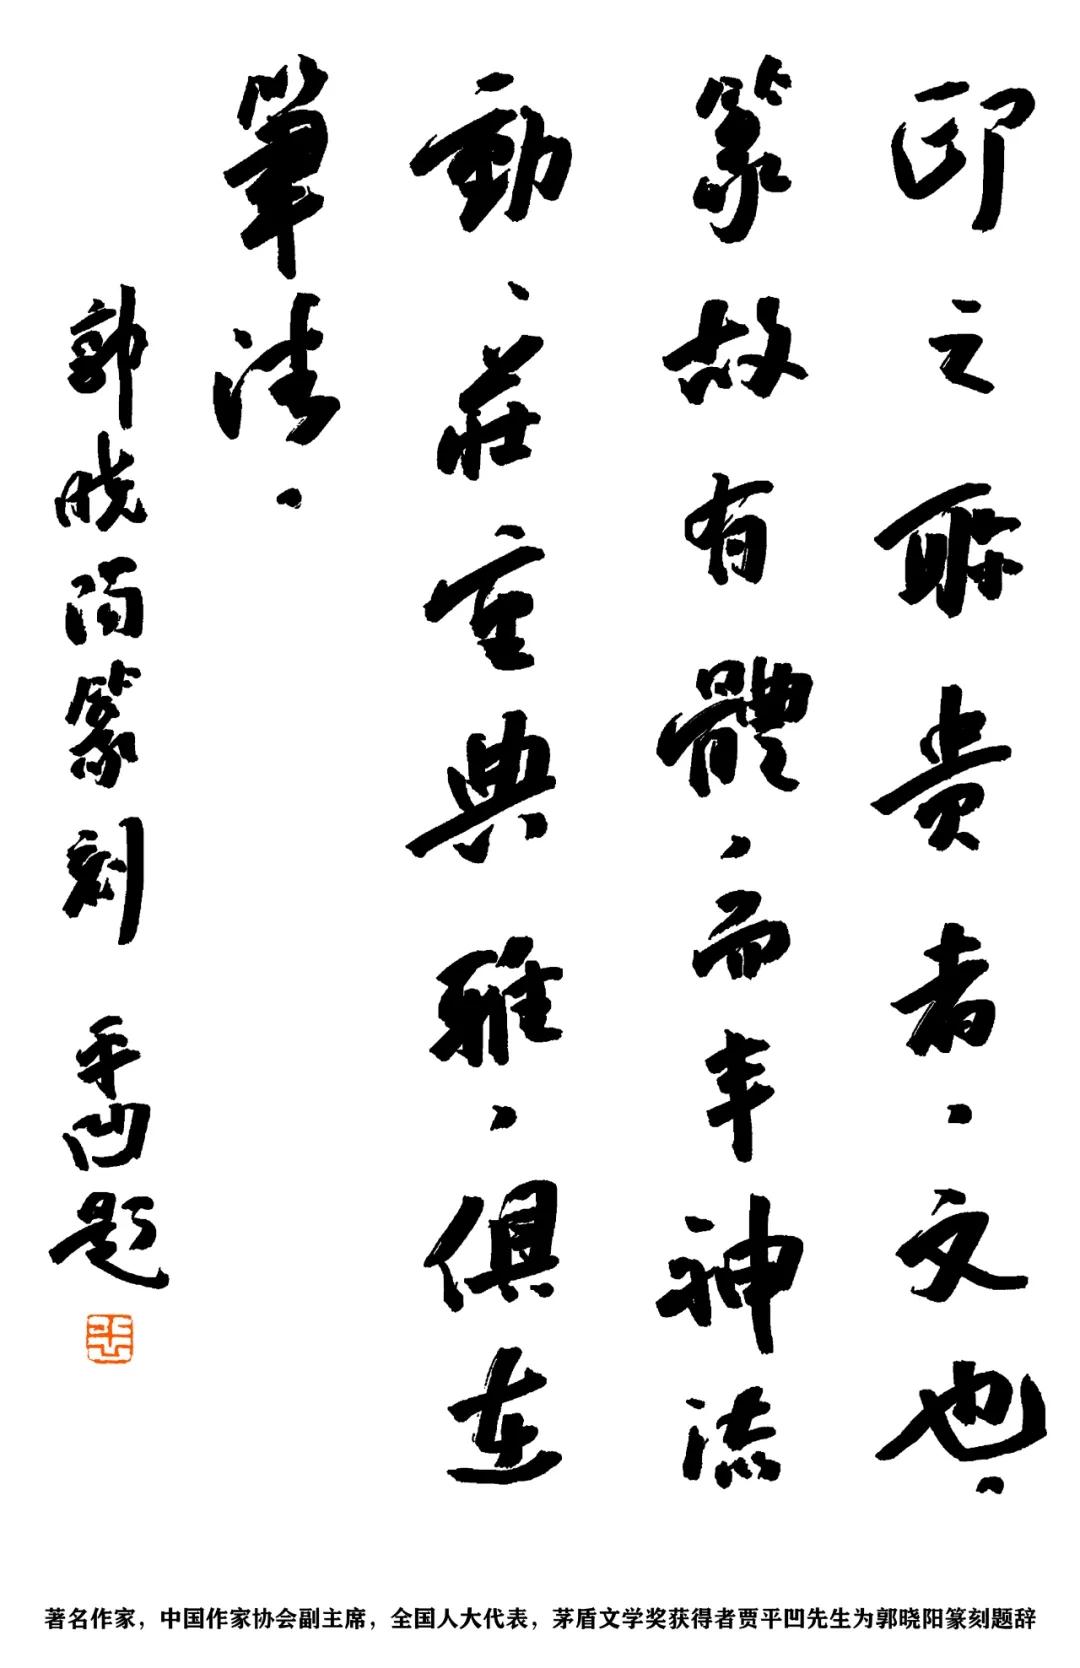 印之所貴者．文也、
篆故有體、而丰神流
動、莊重典雅、俱在
筆法．
郭晓阳篆刻 平凹题
著名作家，中国作家协会副主席，全国人大代表，茅盾文学奖获得者贾平凹先生为郭晓阳篆刻题辞